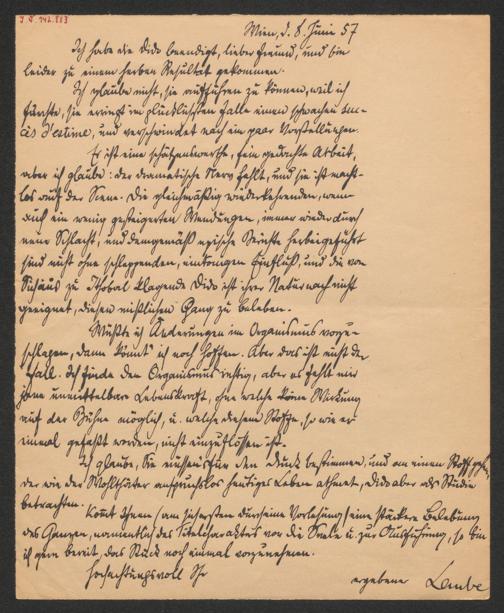 I.N. 142.813
Wien, d. 8. Juni 57
Ich habe die Dido beendigt, lieber Freund, und bin
leider zu einem herben Resultat gekommen.
Ich glaube nicht, sie aufführen zu können, weil ich
fürchte, sie erringt im glücklichsten Falle einen schwachen suc-
cès d'estime, und verschwindet nach ein paar Vorstellungen.
Es ist eine schätzenswerthe, fein gedachte Arbeit,
aber ich glaube: der dramatische Nerv fehlt, und sie ist macht-
los auf der Scene. Die gleichmäßig wiederkehrenden, wenn
auch ein wenig gesteigerten Wendungen, immer wieder durch
neue Schlacht, und demgemäß epische Berichte herbeigeführt
sind nicht ohne schleppenden, eintönigen Einfluß, und die von
Sichäus zu Ithobal klagende Dido ist ihrer Natur nach nicht
geeignet, diesen mißlichen Gang zu beleben.
Wüßte ich Änderungen im Organismus vorzu-
schlagen, dann könnt' ich noch hoffen. Aber das ist nicht der
Fall. Ich finde den Organismus richtig, aber es fehlt mir
jene unmittelbare Lebenskraft, ohne welche keine Wirkung
auf der Bühne möglich, u. welche diesem Stoffe, so wie er
einmal gefaßt worden, nicht einzuflößen ist.
Ich glaube, Sie müssen's für den Druck bestimmen, und an einen Stoff gehn,
der wie der Wohlthäter anspruchslos heutiges Leben athmet, Dido aber als Studie
betrachten.
Kommt Ihnen (am sichersten durch eine Vorlesung) eine stärkere Belebung
des Ganzen, namentlich des Titelcharakters vor die Seele u. zur Ausführung, so bin
ich gern bereit, das Stück noch einmal vorzunehmen.
Hochachtungsvoll Ihr
ergebener Laube